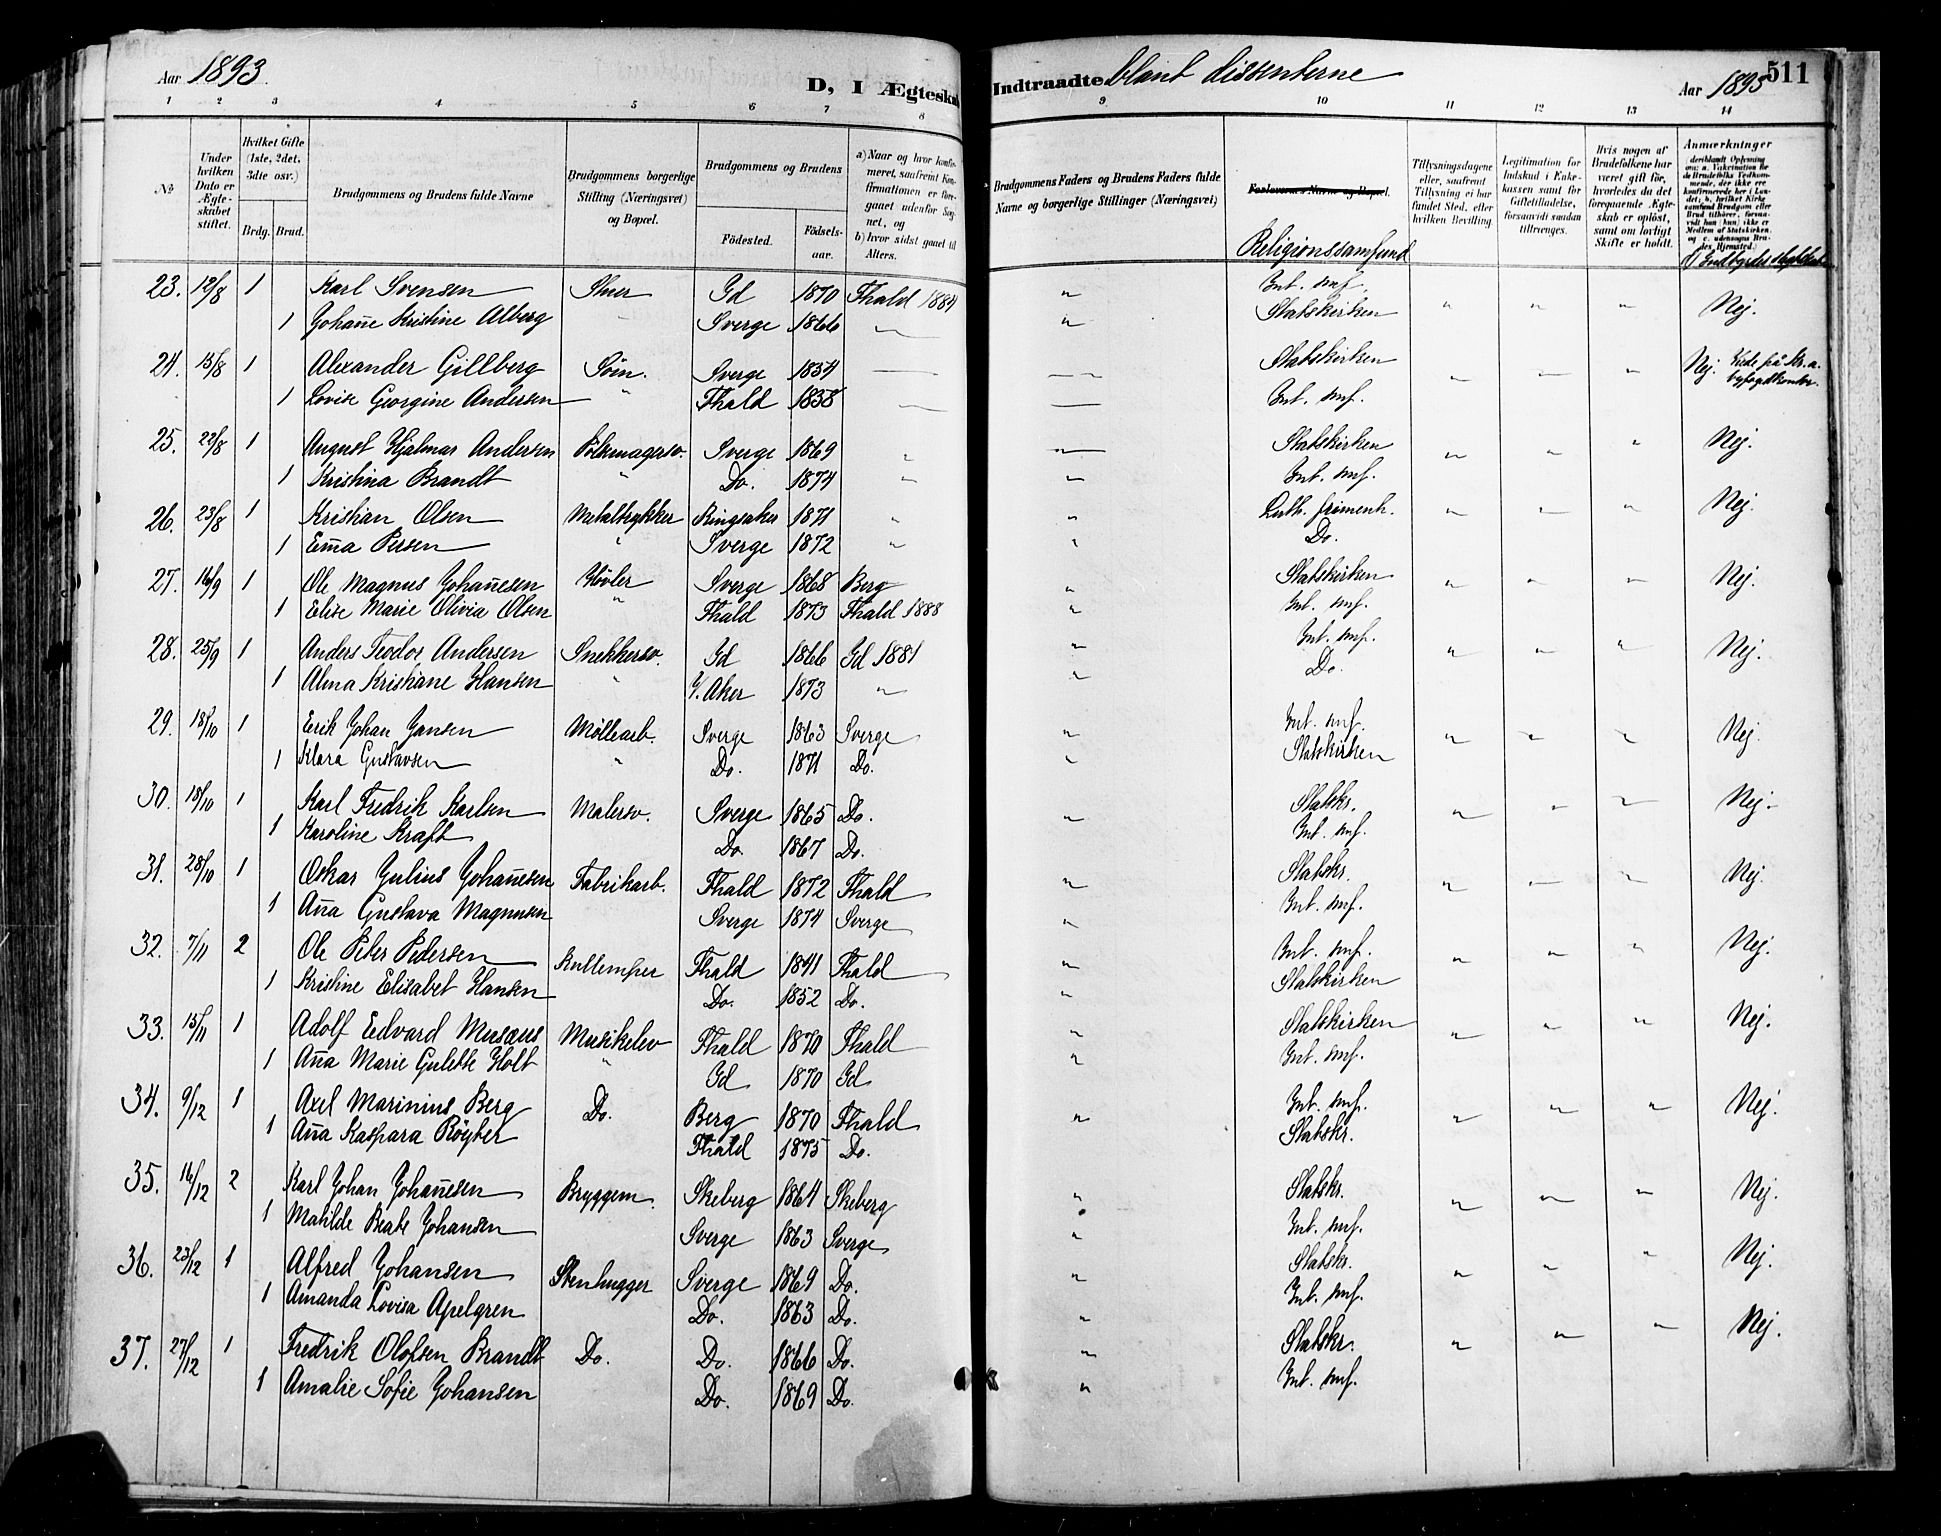 Aar 1893. D, I Ægteskab Indtraadte blant dissenterne Aar 1893 511
1 2 3 4 5 6 7 8 9 10 11 12 13 14
No
Under hvilken Dato er Ægteskabet stiftet.
Hvilket Gifte (1ste, 2det, 3die osv.)
Brdg. Brud.
Brudgommens og Brudens fulde Navne
Brudgommens borgerlige Stilling (Næringsvei) og Bopæl.
Brudgommens og Brudens
Fødested. Fødselsaar.
a) Naar og hvor konfirmeret, saafremt Konfirmationen er foregaaet udenfor Sognet, og b) hvor sidst gaaet til Alters.
Brudgommens Faders og Brudens Faders fulde Navne og borgerlige Stillinger (Næringsvei)
Forlovernes Navne og Bopæl.
Religionssamfund
Tillysningsdagene eller, saafremt Tillysning ei har fundet Sted, efter hvilken Bevilling.
Legitimation for Indskud i Enkekassen samt for Giftetilladelse, forsaavidt saadan tiltrænges.
Hvis nogen af Brudefolkene har været gift før, hvorledes da det foregaaende Ægteskab er opløst, samt om lovligt Skifte er holdt.
Anmærkninger
23. 12/8 1 Karl Svensen Stuer Gd 1870 Fhald 1884 " Int. smf. " " " Nej.
1 Johanne Kristine Alberg " Sverge 1866 " " Statskirken
24. 15/8 1 Alexander Gillberg Søm. Sverge 1834 Statskirken " " " Nej. Viede på Kr.a. byfogdkontor.
1 Lovise Georgine Andersen " Fhald 1838 Int. smf.
25. 22/8 1 August Hjalmar Andersen Pølsemagersv. Sverge 1869 " Statskirken " " " Nej.
1 Kristina Brandt " Do. 1874 " " Int. smf.
26. 23/8 1 Kristian Olsen Metaltrykker Ringsaker 1871 " " Luth. frimenh. " " " Nej.
1 Emma Persen " Sverge 1872 " " Do.
27. 16/9 1 Ole Magnus Johannesen Høvler Sverge 1868 Berg " Statskirken " " " Nej.
1 Elise Marie Olivia Olsen " Fhald 1873 Fhald 1888 " Int. smf.
28. 25/9 1 Anders Teodor Andersen Snekkersv. Gd 1866 Gd 1881 " Int. smf. " " " Nej.
1 Alma Kristiane Hansen " V. Aker 1873 " " Do.
29. 18/10 1 Erik Johan Jansen Møllearb. Sverge 1863 Sverge " Int. smf. " " " Nej.
1 Klara Gustavsen " Do. 1871 Do. " Statskirken
30. 18/10 1 Karl Fredrik Karlsen Malersv. Sverge 1865 Do. " Statskr. " " " Nej.
1 Karoline Kraft Do. 1867 Do. Int. smf.
31. 28/10 1 Oskar Julius Johannesen Fabrikarb. Fhald 1872 Fhald " Statskr. " " " Nej.
1 Anna Gustava Magnusen Sverge 1874 Sverge " Int. smf.
32. 7/11 2 Ole Peter Pedersen Kullemper Fhald 1841 Fhald " Int. smf. " " " Nej.
1 Kristine Elisabet Hansen Do. 1852 Do. " Statskirken
33. 15/11 1 Adolf Edvard Musæus Musikelev Fhald 1870 Fhald " Statskirken " " " Nej.
1 Anna Marie Gulette Holt " Gd 1870 Gd " Int. smf.
34. 9/12 1 Axel Marinius Berg Do. Berg 1870 Fhald " Int. smf. " " " Nej.
1 Anna Kaspara Røyter Fhald 1875 Do. Statskr.
35. 16/12 2 Karl Johan Johannesen Bryggem. Skeberg 1864 Skeberg " Statskr. " " " Nej.
1 Matilde Beate Johansen Sverge 1863 Sverge " Int. smf.
36. 23/12 1 Alfred Johansen Stenhugger Sverge 1869 Do. " Statskr. " " " Nej.
1 Amanda Lovisa Apelgren Do. 1863 Do. " Int. smf.
37. 27/12 1 Fredrik Olofsen Brandt Do. Do. 1866 Do. " Statskr. " " " Nej.
1 Amalie Sofie Johansen Do. 1869 Do. " Int. smf.